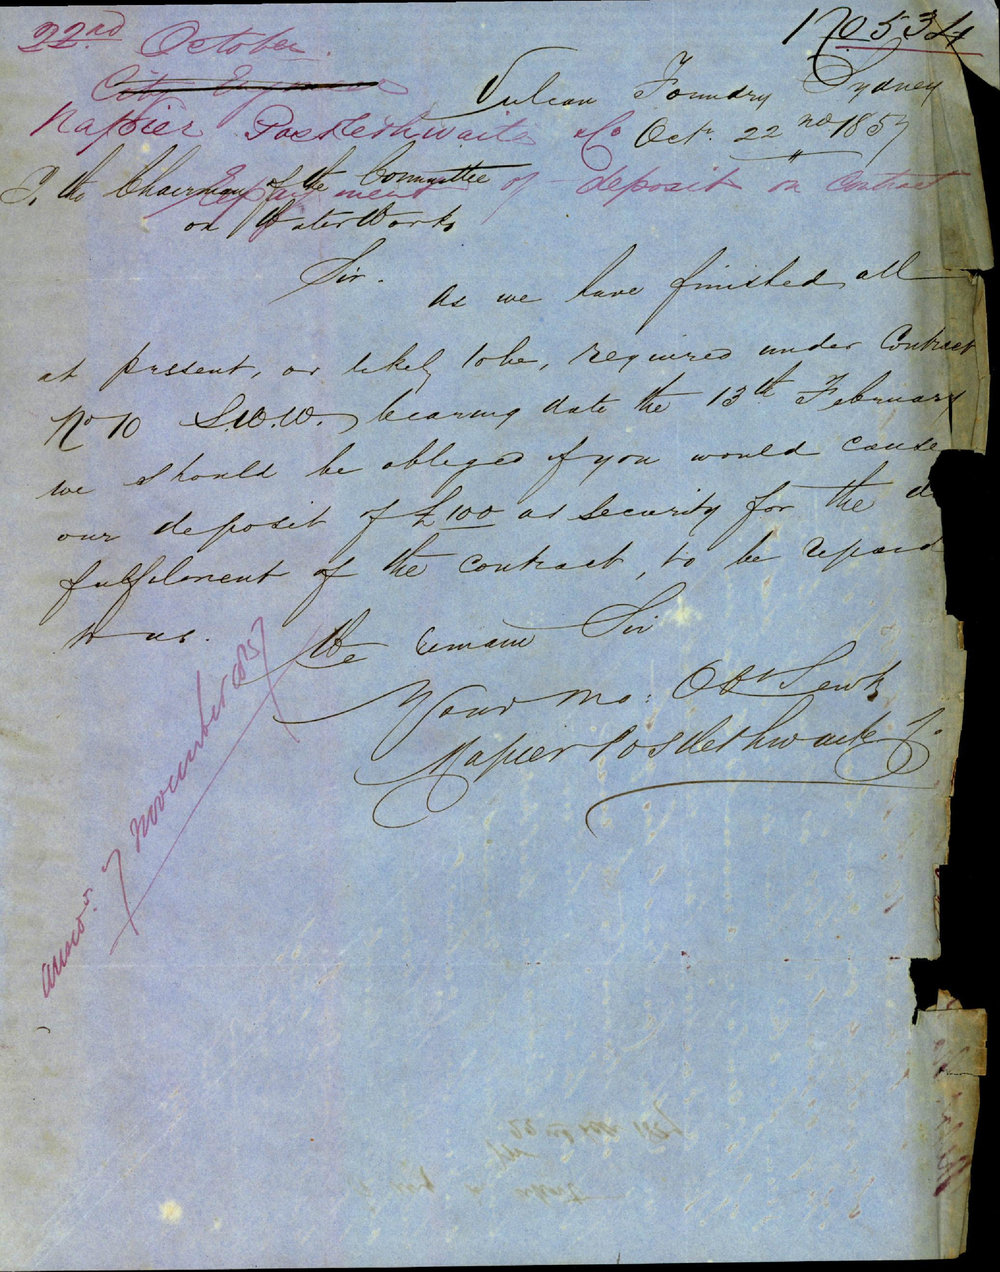 22nd October.
170534
City Engineer
Vulcan Foundry Sydney
Napier Postlethwaite & Co
Octr. 22nd 1857
To the Chairman of the Committee
Repayment of deposit on Contract
on Water Works
Sir.
As we have finished all
at present, or likely to be, required under Contract
No 10 S.W.W. bearing date the 13th February
we should be obliged if you would cause
our deposit of £100 as security for the d
fulfilment of the contract, to be repaid
to us.
We remain Sir
Your Mo: Obt Servts
Napier Postlethwaite &
answd. 7 November 1857